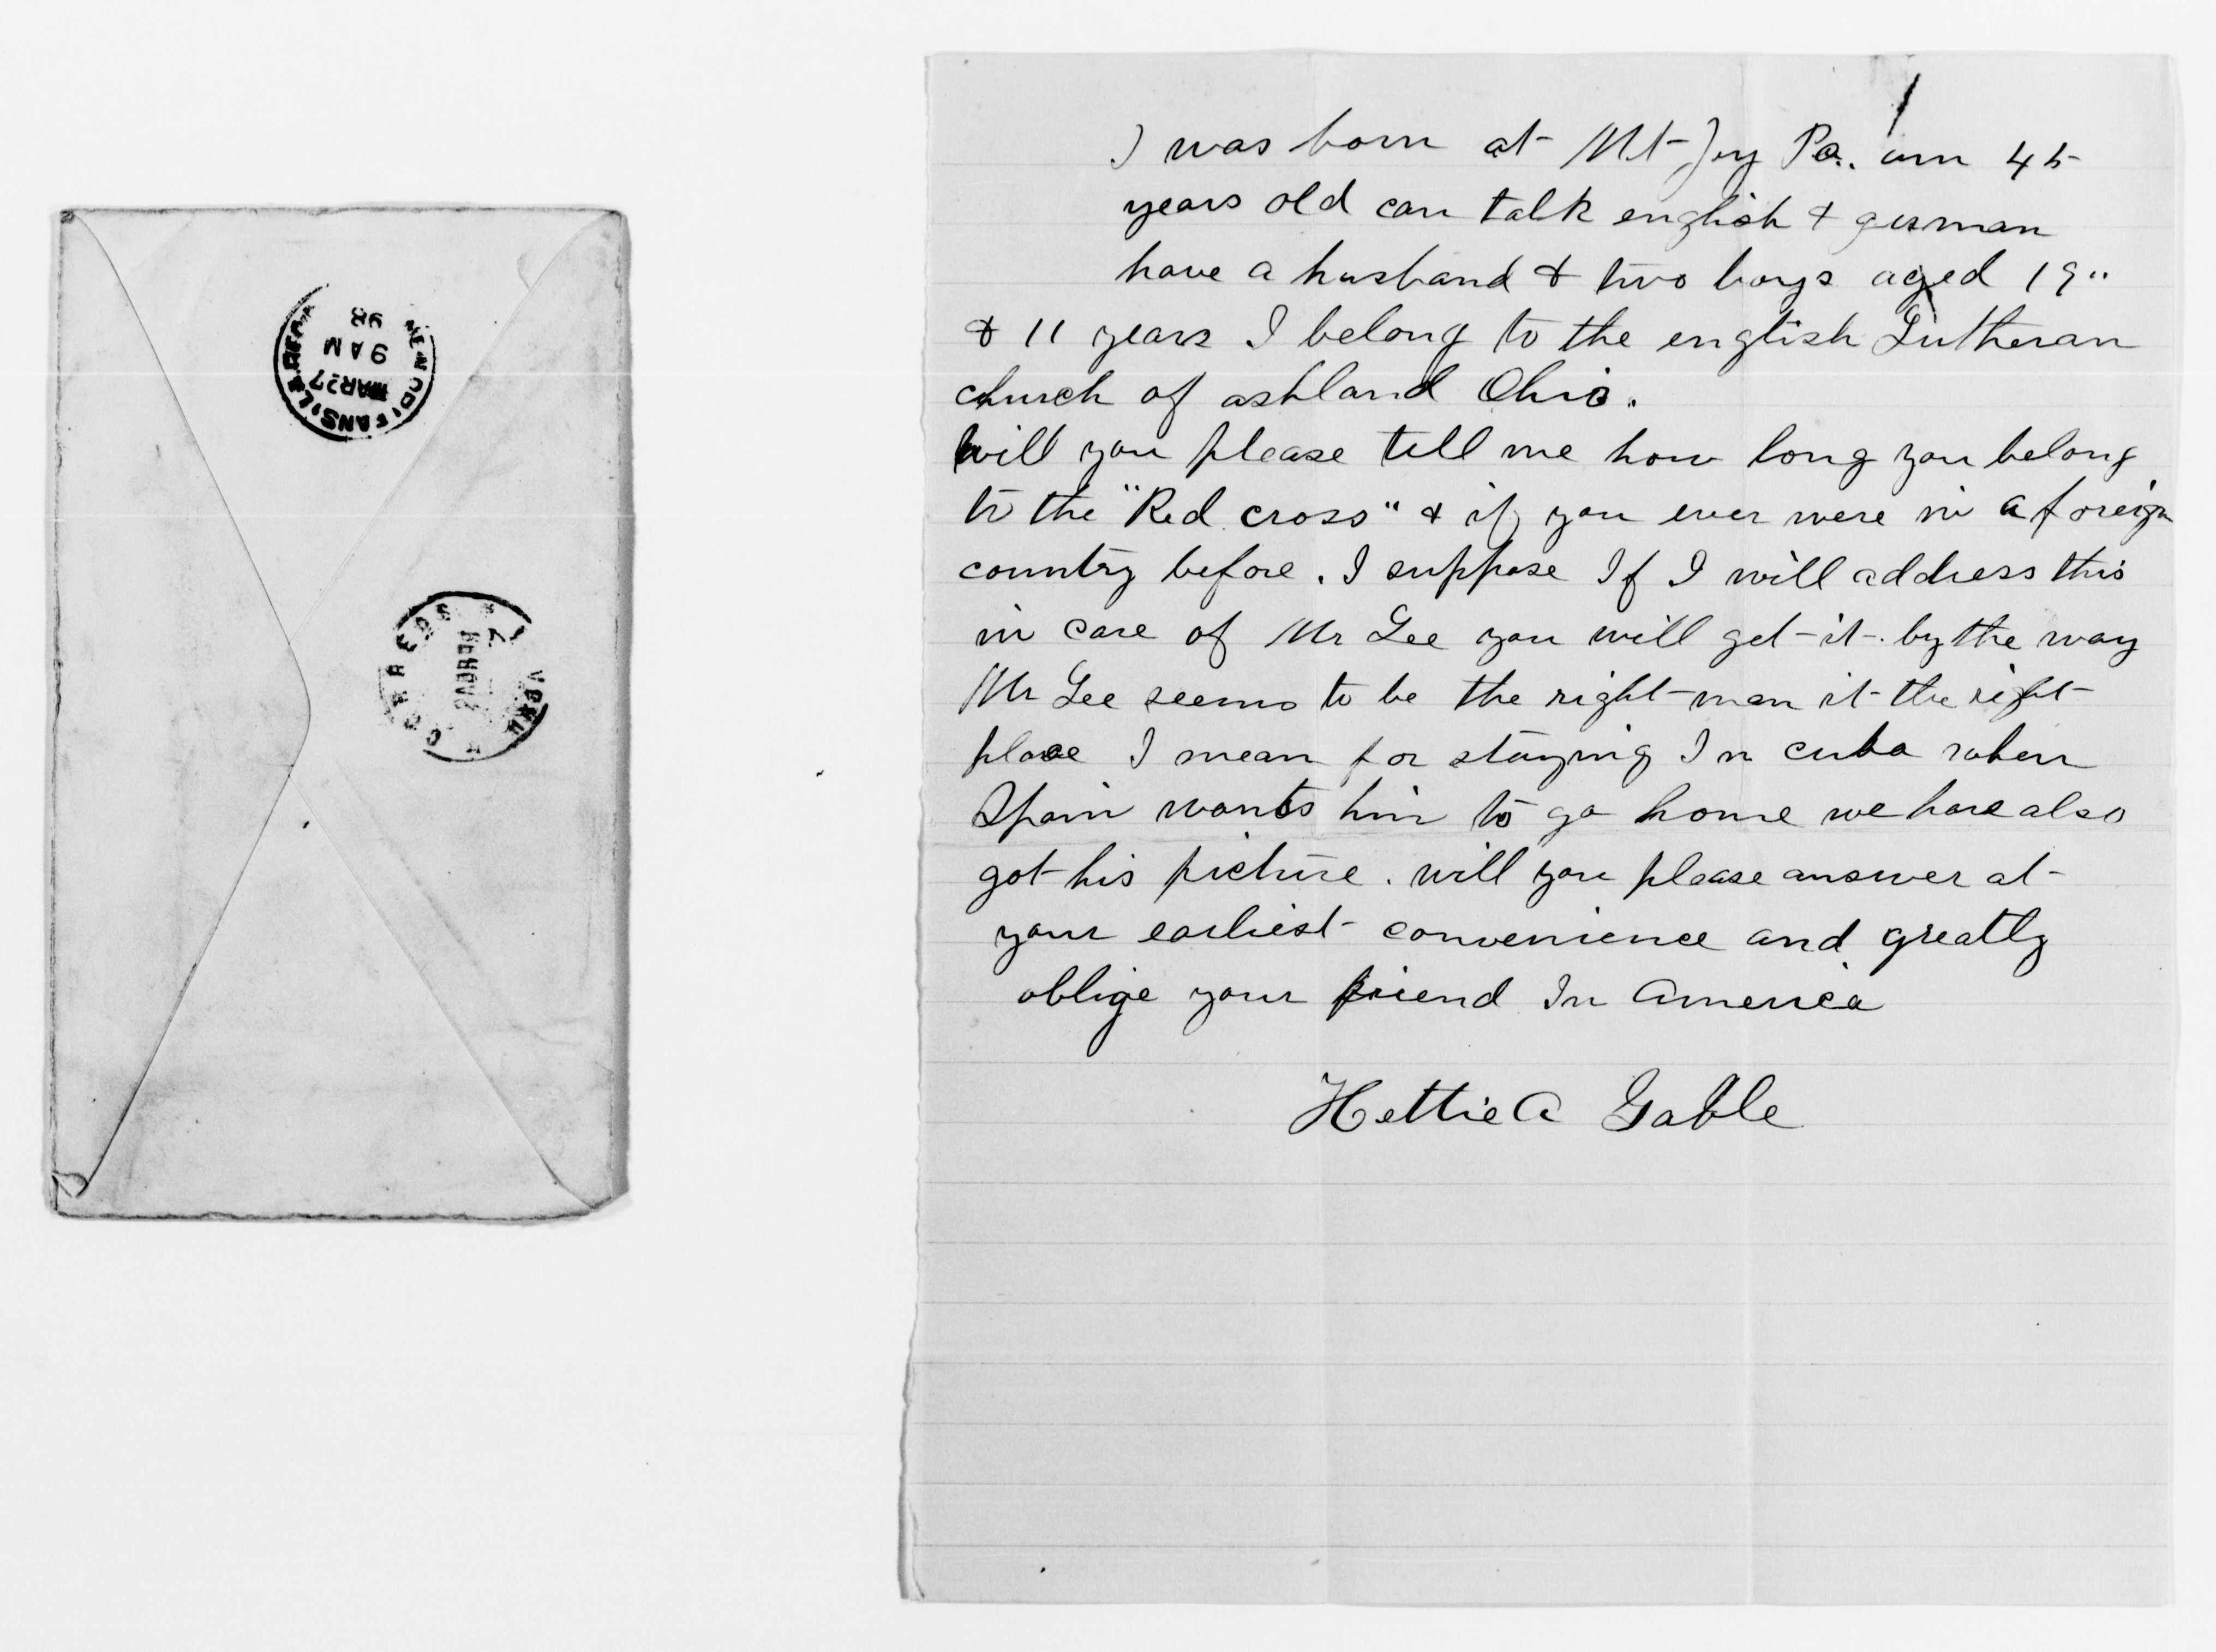 MAR 27
9 AM
98
CORREOS
I was born at Mt Joy Pa. am 45
years old can talk english & german
have a husband & two boys aged 19"
& 11 years I belong to the english Lutheran
church of ashland Ohio.
will you please tell me how long you belong
to the "Red cross" & if you ever were in a foreign
country before. I suppose If I will address this
in care of Mr Lee you will get it. by the way
Mr Lee seems to be the right man it the right
place I mean for staying In cuba when
Spain wants him to go home we have also
got his picture. will you please answer at
your earliest convenience and greatly
oblige your friend In America
Hettie A Gable